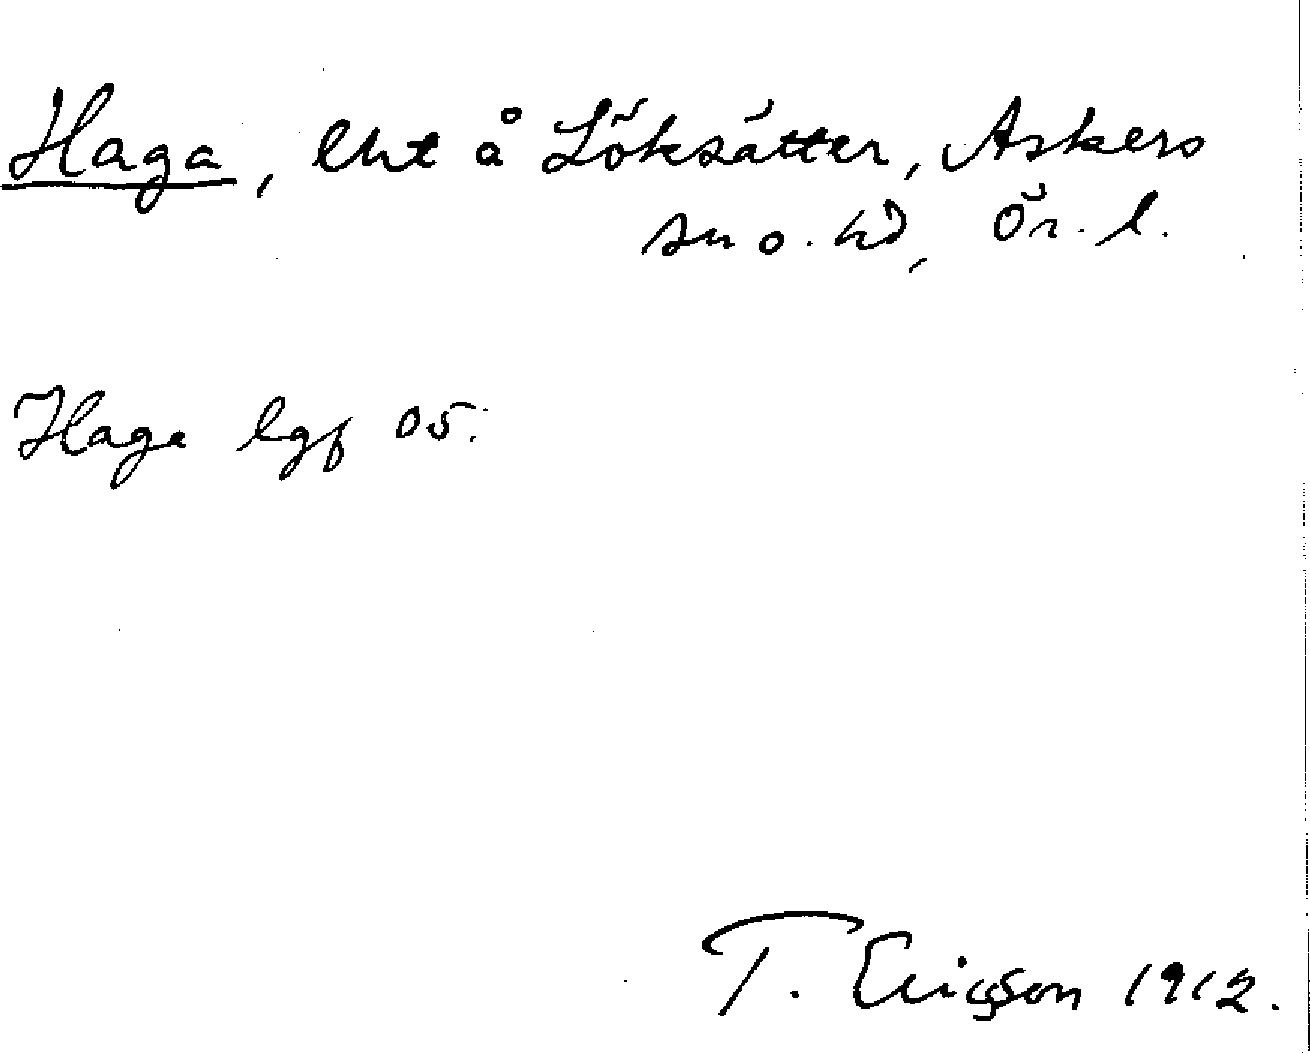 Haga, lht å Löksätter, Askers
sn o. hd, Ör. l.
Haga lgf 05.
T. Ericsson 1912.